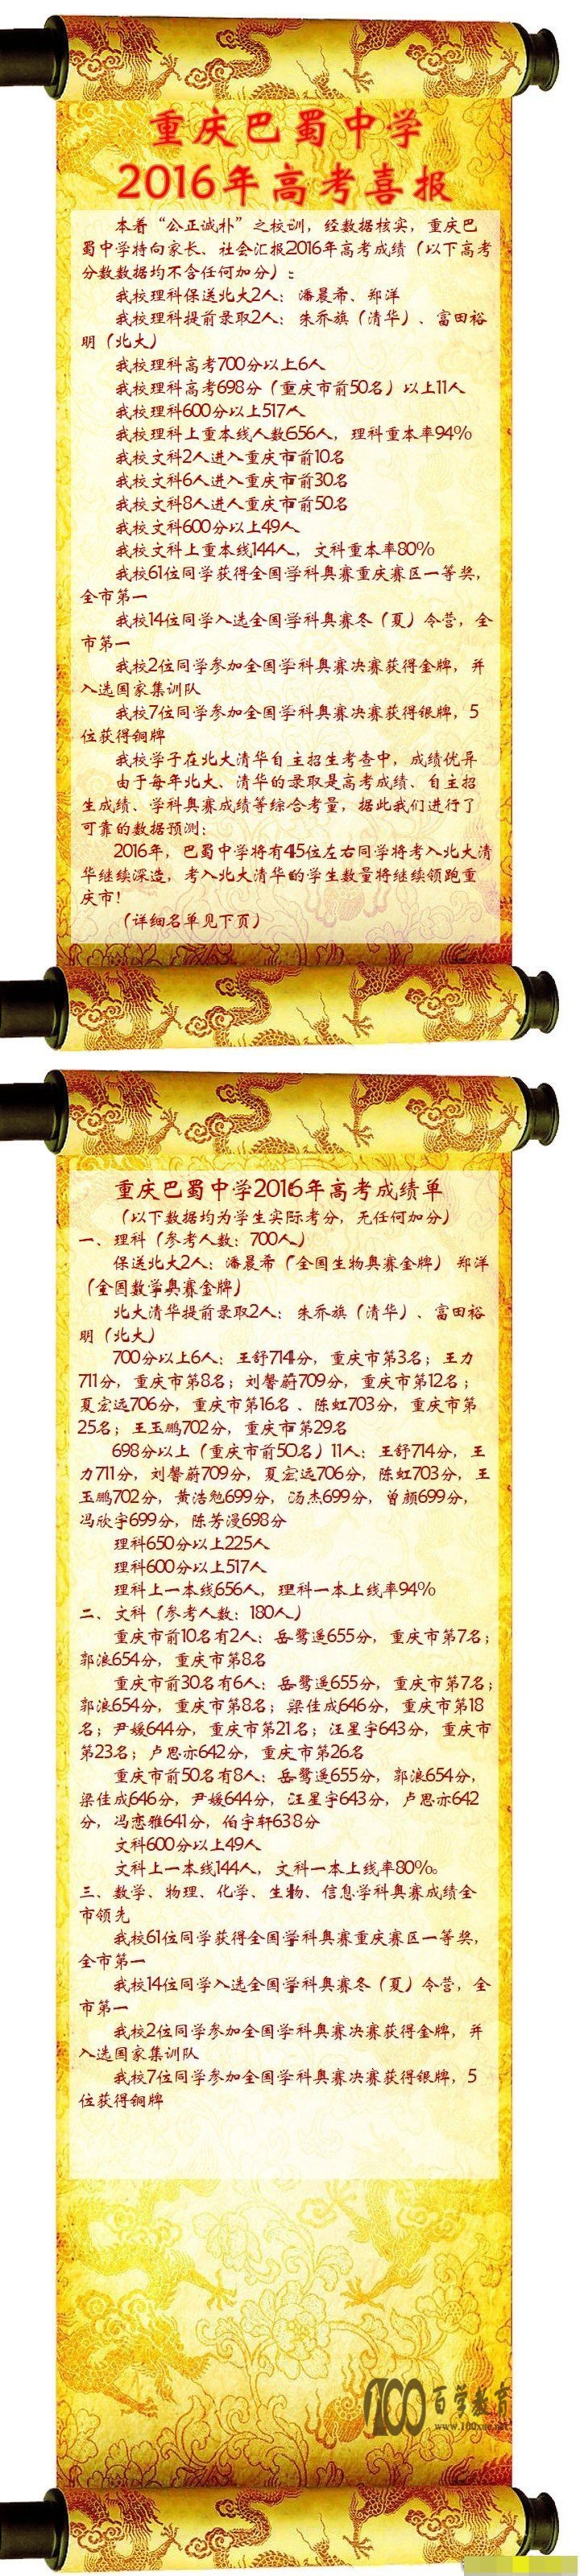 重庆巴蜀中学
2016年高考喜报
本着“公正诚朴”之校训，经数据核实，重庆巴
蜀中学特向家长、社会汇报2016年高考成绩（以下高考
分数数据均不含任何加分）：
我校理科保送北大2人：潘晨希、郑洋
我校理科提前录取2人：朱乔旗（清华）、富田裕
明（北大）
我校理科高考700分以上6人
我校理科高考698分（重庆市前50名）以上11人
我校理科600分以上517人
我校理科上重本线人数656人，理科重本率94%
我校文科2人进入重庆市前10名
我校文科6人进入重庆市前30名
我校文科8人进人重庆市前50名
我校文科600分以上49人
我校文科上重本线144人，文科重本率80%
我校61位同学获得全国学科奥赛重庆赛区一等奖，
全市第一
我校14位同学入选全国学科奥赛冬（夏）令营，全
市第一
我校2位同学参加全国学科奥赛决赛获得金牌，并
入选国家集训队
我校7位同学参加全国学科奥赛决赛获得银牌，5
位获得铜牌
我校学子在北大清华自主招生考查中，成绩优异
由于每年北大、清华的录取是高考成绩、自主招
生成绩、学科奥赛成绩等综合考量，据此我们进行了
可靠的数据预测：
2016年，巴蜀中学将有45位左右同学将考入北大清
华继续深造，考入北大清华的学生数量将继续领跑重
庆市！
（详细名单见下页）
重庆巴蜀中学2016年高考成绩单
（以下数据均为学生实际考分，无任何加分）
一、理科（参考人数：700人）
保送北大2人：潘晨希（全国生物奥赛金牌） 郑洋
（全国数学奥赛金牌）
北大清华提前录取2人：朱乔旗（清华）、富田裕
明（北大）
700分以上6人：王舒714分，重庆市第3名；王力
711分，重庆市第8名；刘馨蔚709分，重庆市第12名；
夏宏远706分，重庆市第16名 、陈虹703分，重庆市第
25名；王玉鹏702分，重庆市第29名
698分以上（重庆市前50名）11人：王舒714分，王
力711分，刘馨蔚709分，夏宏远706分，陈虹703分，王
玉鹏702分，黄浩勉699分，汤杰699分，曾颜699分，
冯欣宇699分，陈芳漫698分
理科650分以上225人
理科600分以上517人
理科上一本线656人，理科一本上线率94%
二、文科（参考人数：180人）
重庆市前10名有2人：岳鹭遥655分，重庆市第7名；
郭浪654分，重庆市第8名
重庆市前30名有6人：岳鹭遥655分，重庆市第7名；
郭浪654分，重庆市第8名；梁佳成646分，重庆市第18
名；尹媛644分，重庆市第21名；汪星宇643分，重庆市
第23名；卢思亦642分，重庆市第26名
重庆市前50名有8人：岳鹭遥655分，郭浪654分，
梁佳成646分，尹媛644分，汪星宇643分，卢思亦642
分，冯恋雅641分，伯宇轩638分
文科600分以上49人
文科上一本线144人，文科一本上线率80%。
三、数学、物理、化学、生物、信息学科奥赛成绩全
市领先
我校61位同学获得全国学科奥赛重庆赛区一等奖，
全市第一
我校14位同学入选全国学科奥赛冬（夏）令营，全
市第一
我校2位同学参加全国学科奥赛决赛获得金牌，并
入选国家集训队
我校7位同学参加全国学科奥赛决赛获得银牌，5
位获得铜牌
100百学教育
www.100xue.net